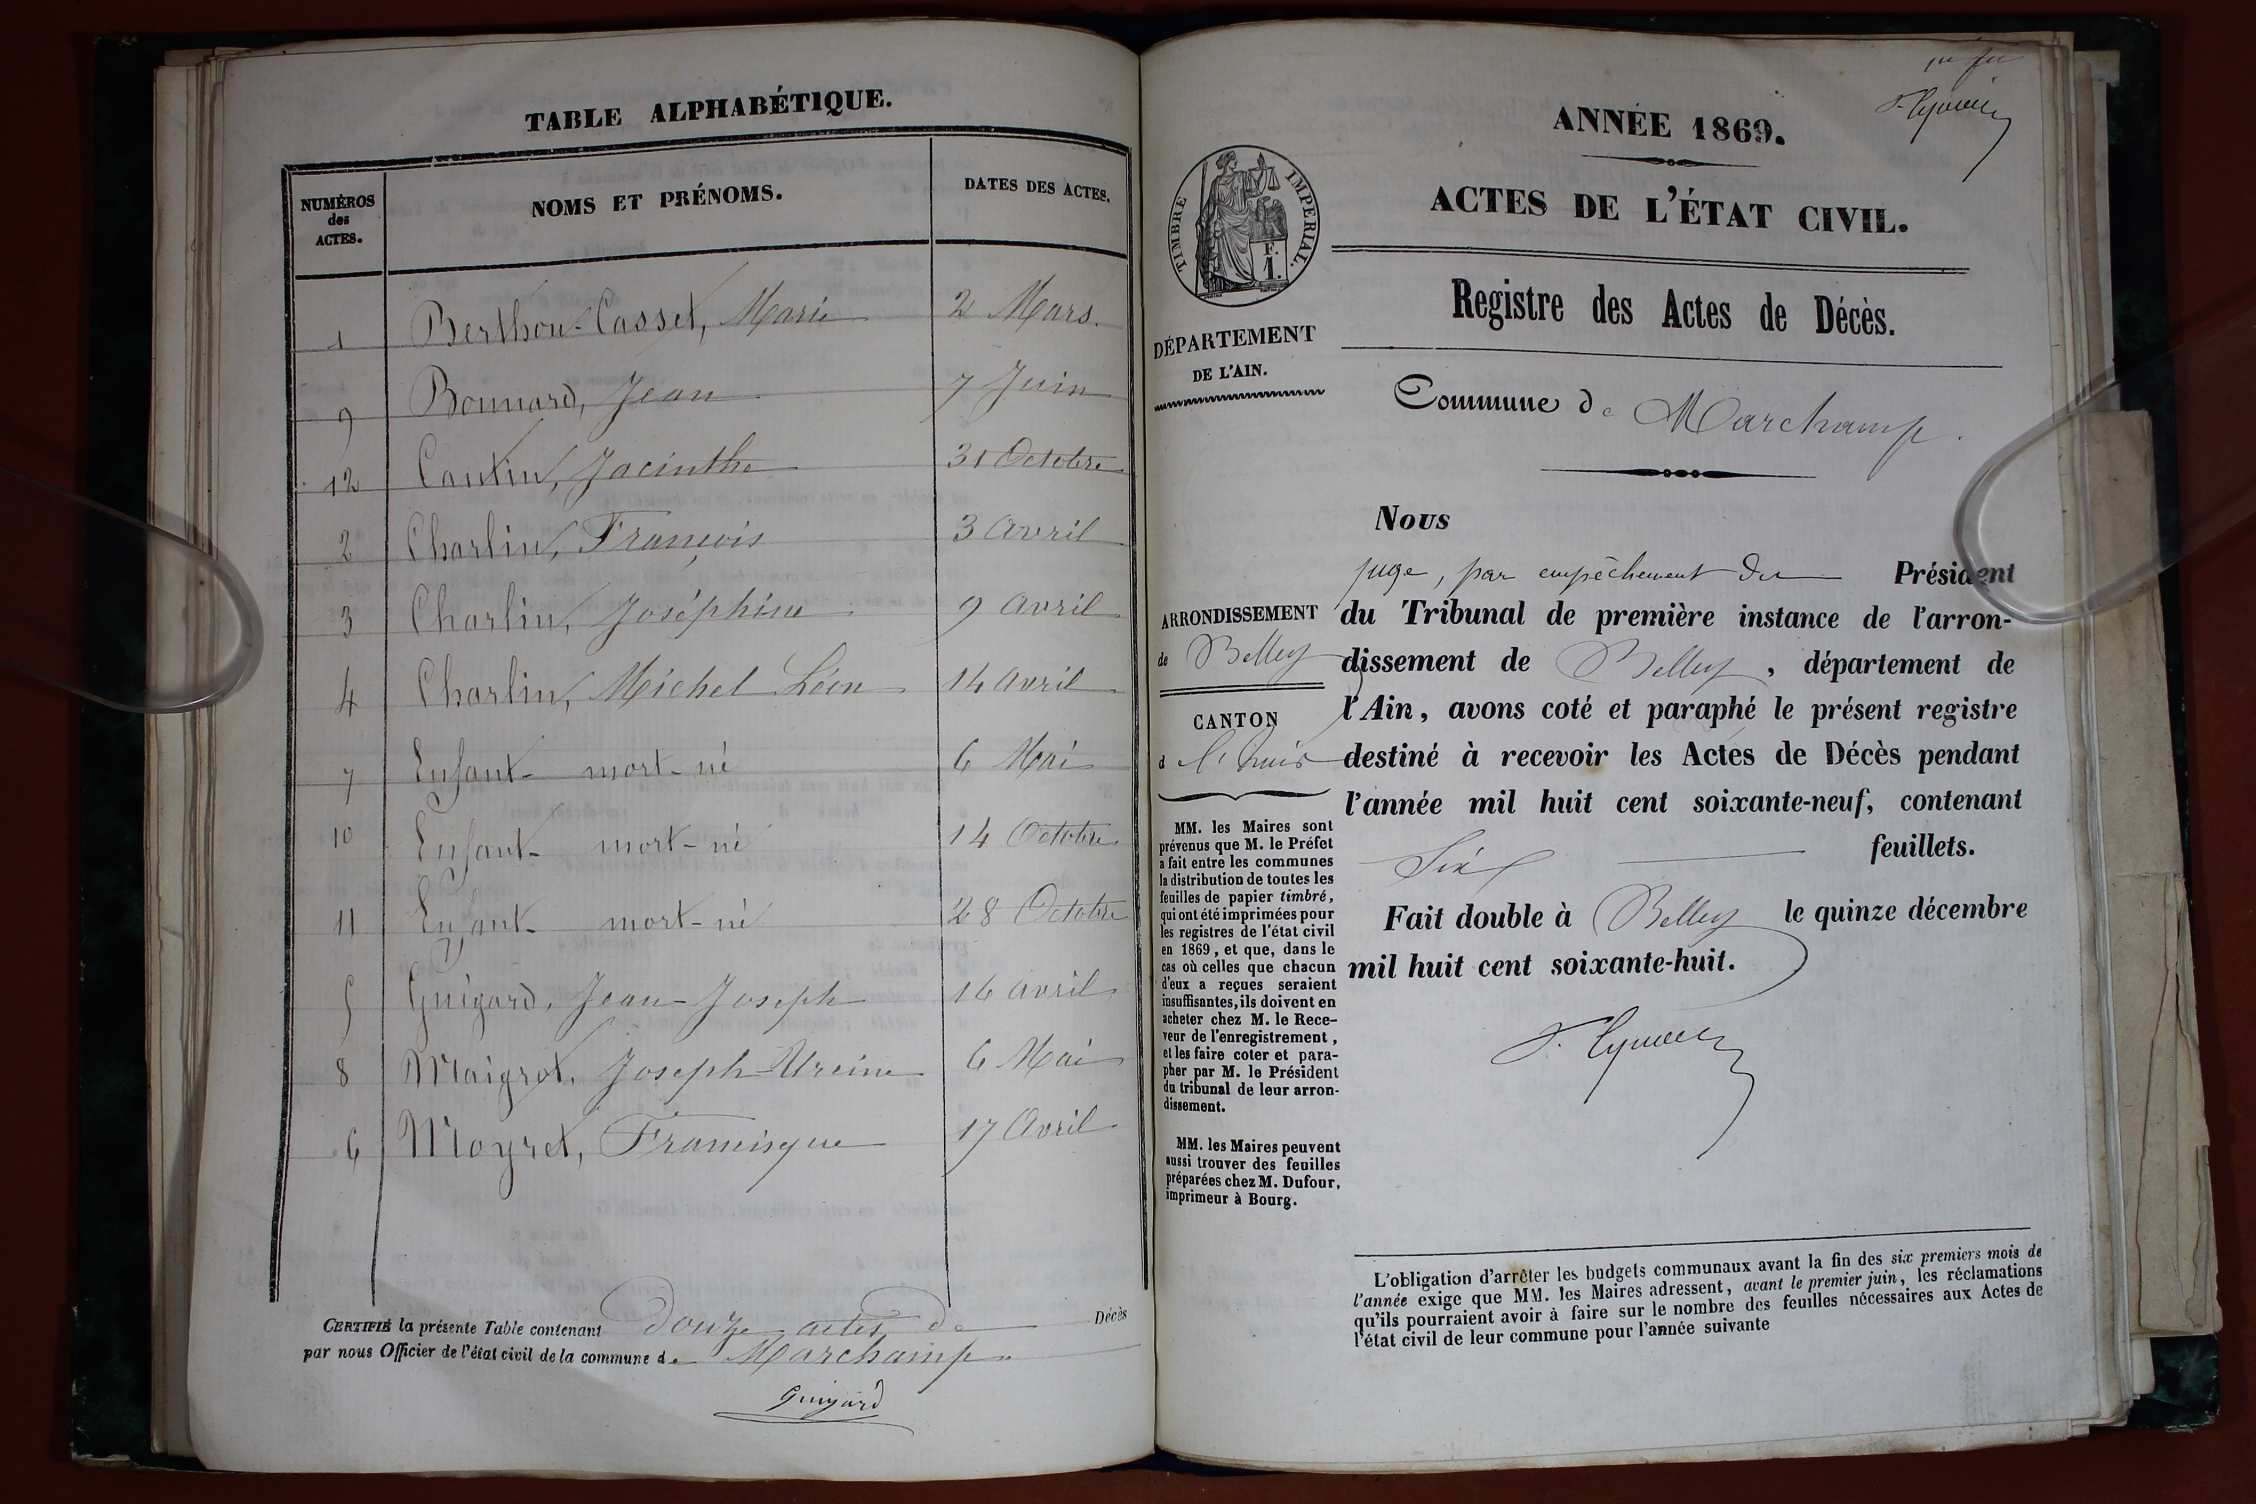 TABLE ALPHABÉTIQUE.
NUMÉROS
des
ACTES.
NOMS ET PRÉNOMS.
DATES DES ACTES.
1 Berthou-Casset, Marie 2 Mars.
9 Bonnard, Jean 7 Juin
12 Cantin, Jacinthe 31 Octobre
2 Charlin, François 3 Avril
3 Charlin, Joséphine 9 Avril
4 Charlin, Michel Léon 14 Avril
7 Enfant mort-né 6 Mai
10 Enfant mort-né 14 Octobre
11 Enfant mort-né 28 Octobre
5 Guigard, Jean-Joseph 16 Avril
8 Maigrot, Joseph 6 Mai
6 Moyret, Francisque 17 Avril
CERTIFIÉ la présente Table contenant douze actes de Décès
par nous Officier de l'état civil de la commune de Marchamp
Guigard
ANNÉE 1869.
ACTES DE L'ÉTAT CIVIL.
Registre des Actes de Décès.
TIMBRE IMPERIAL.
F.
1.
DÉPARTEMENT
DE L'AIN.
Commune de Marchamp.
ARRONDISSEMENT
de Belley
CANTON
d
MM. les Maires sont
prévenus que M. le Préfet
a fait entre les communes
la distribution de toutes les
feuilles de papier timbré,
qui ont été imprimées pour
les registres de l'état civil
en 1869, et que, dans le
cas où celles que chacun
d'eux a reçues seraient
insuffisantes, ils doivent en
acheter chez M. le Rece-
veur de l'enregistrement,
et les faire coter et para-
pher par M. le Président
du tribunal de leur arron-
dissement.
MM. les Maires peuvent
aussi trouver des feuilles
préparées chez M. Dufour,
imprimeur à Bourg.
Nous
juge, par empêchement du Président
du Tribunal de première instance de l'arron-
dissement de Belley, département de
l'Ain, avons coté et paraphé le présent registre
destiné à recevoir les Actes de Décès pendant
l'année mil huit cent soixante-neuf, contenant
Six feuillets.
Fait double à Belley le quinze décembre
mil huit cent soixante-huit.
L'obligation d'arrêter les budgets communaux avant la fin des six premiers mois de
l'année exige que MM. les Maires adressent, avant le premier juin, les réclamations
qu'ils pourraient avoir à faire sur le nombre des feuilles nécessaires aux Actes de
l'état civil de leur commune pour l'année suivante